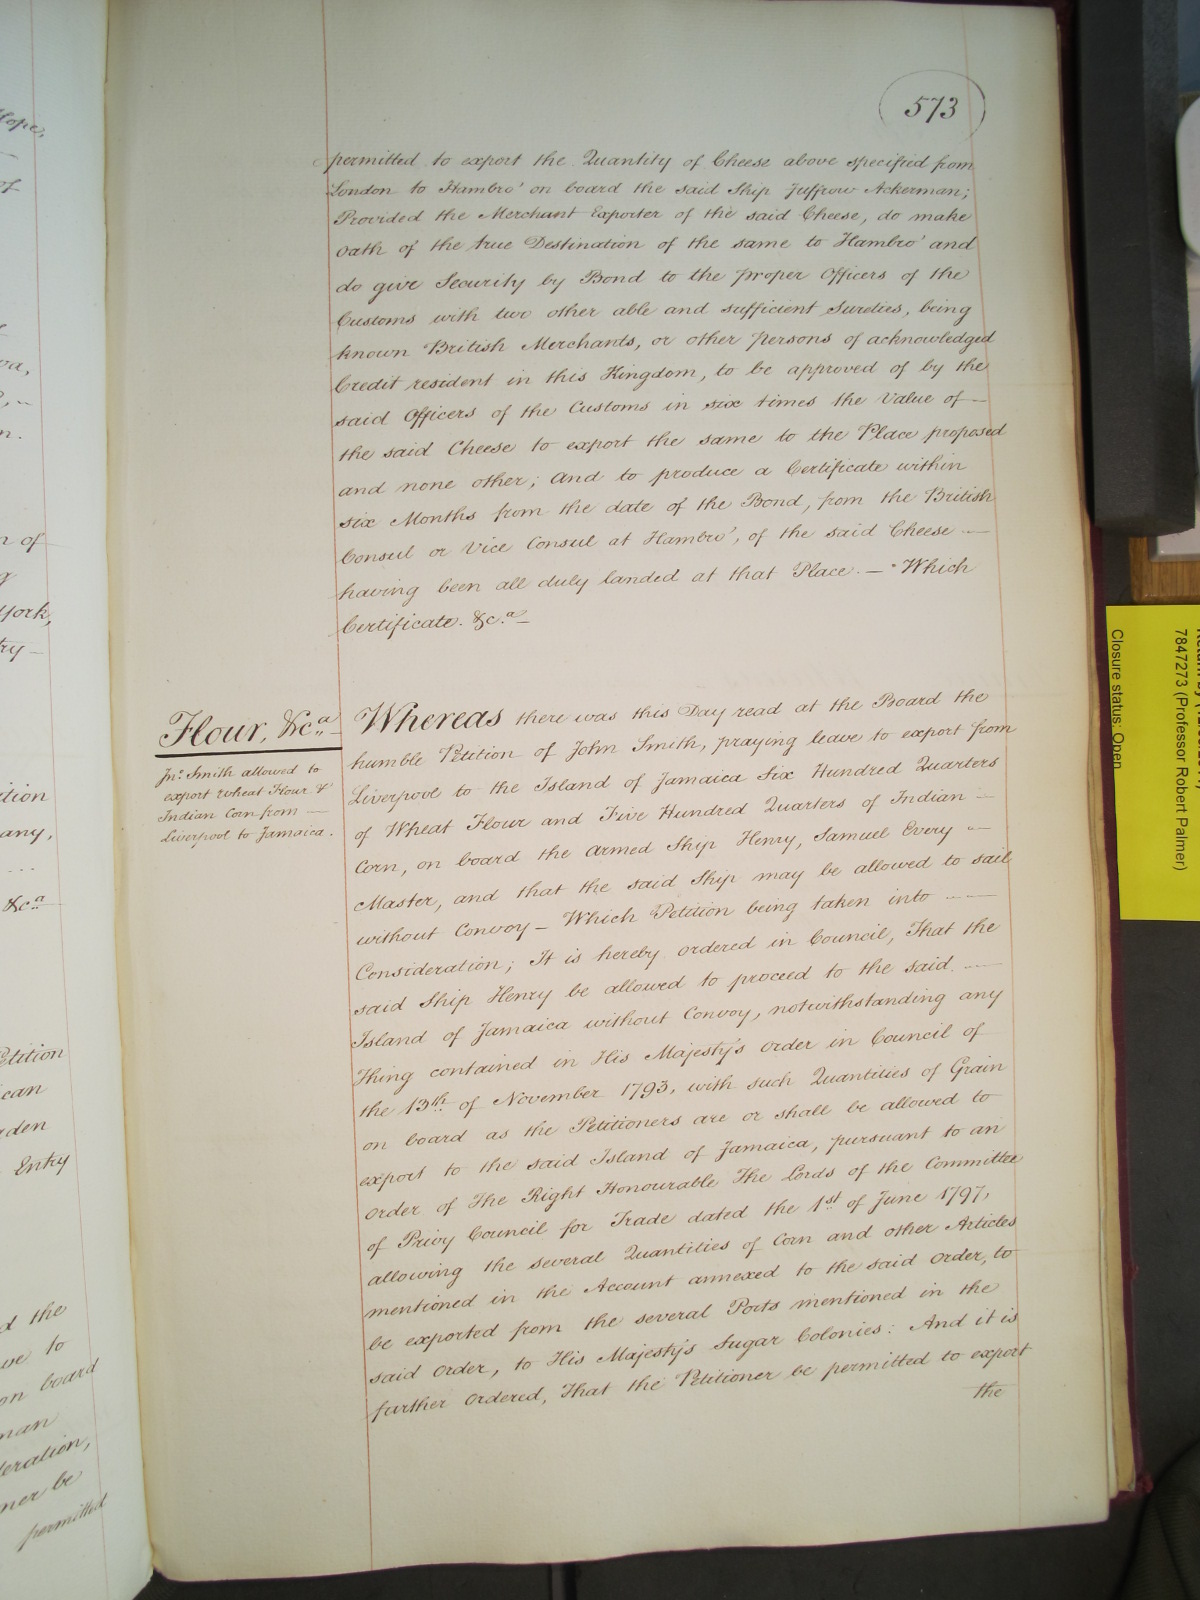 573
permitted to export the Quantity of Cheese above specified from
London to Hambro' on board the said Ship Juffrow Ackerman;
Provided the Merchant Exporter of the said Cheese, do make
Oath of the true Destination of the same to Hambro' and
do give Security by Bond to the proper Officers of the
Customs with two other able and sufficient Sureties, being
known British Merchants, or other persons of acknowledged
Credit resident in this Kingdom, to be approved of by the
said Officers of the Customs in six times the Value of —
the said Cheese to export the same to the Place proposed
and none other; And to produce a Certificate within
six Months from the date of the Bond, from the British
Consul or Vice Consul at Hambro', of the said Cheese —
having been all duly landed at that Place. — Which
Certificate. &c.a —
Flour, &c.a
Jn.o Smith allowed to
export Wheat Flour &
Indian Corn from —
Liverpool to Jamaica.
Whereas there was this Day read at the Board the
humble Petition of John Smith, praying leave to export from
Liverpool to the Island of Jamaica Six Hundred Quarters
of Wheat Flour and Five Hundred Quarters of Indian —
Corn, on board the Armed Ship Henry, Samuel Every —
Master, and that the said Ship may be allowed to sail
without Convoy — Which Petition being taken into —
Consideration; It is hereby ordered in Council, That the
said Ship Henry be allowed to proceed to the said —
Island of Jamaica without Convoy, notwithstanding any
Thing contained in His Majesty's Order in Council of
the 13th of November 1793, with such Quantities of Grain
on board as the Petitioners are or shall be allowed to
export to the said Island of Jamaica, pursuant to an
Order of The Right Honourable The Lords of the Committee
of Privy Council for Trade dated the 1st of June 1797,
allowing the several Quantities of Corn and other Articles
mentioned in the Account annexed to the said Order, to
be exported from the several Ports mentioned in the
said Order, to His Majesty's Sugar Colonies: And it is
further Ordered, That the Petitioner be permitted to export
the
Hope,
of
n of
York,
try —
tition
any,
&c.a
Petition
can
rden
Entry
d the
ve to
on board
man
deration,
ner be
permitted
7847273 (Professor Robert Palmer)
Closure status: Open